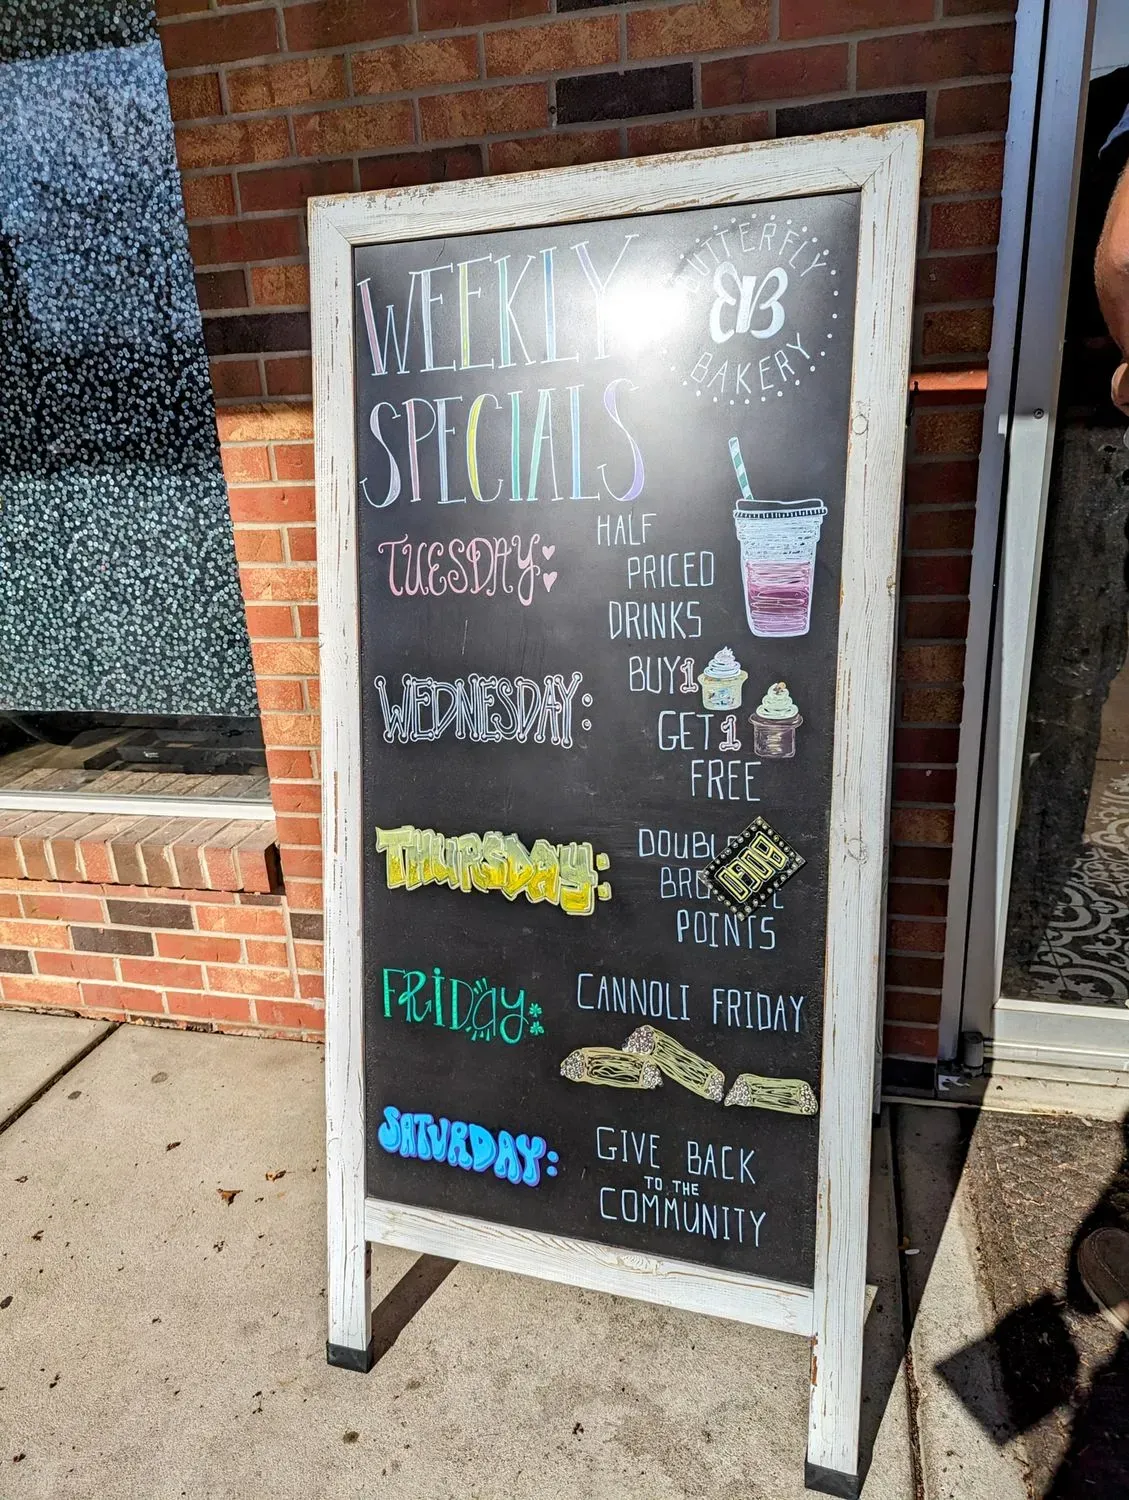 WEEKLY
SPECIALS
BUTTERFLY
BB
BAKERY
TUESDAY:
HALF
PRICED
DRINKS
WEDNESDAY:
BUY 1
GET 1
FREE
THURSDAY:
DOUBL
BOGO
POINTS
FRIDAY:
CANNOLI FRIDAY
SATURDAY:
GIVE BACK
TO THE
COMMUNITY